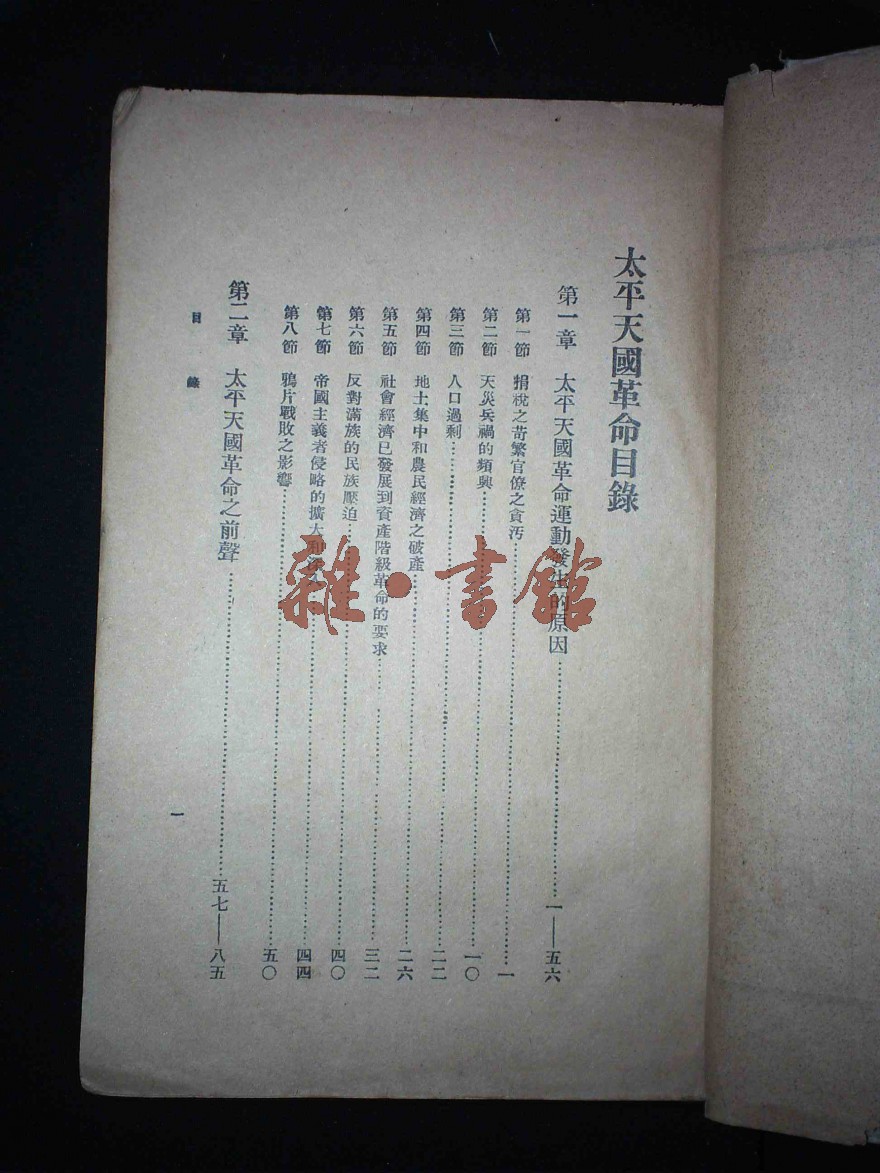 太平天國革命目錄
第一章 太平天國革命運動發生的原因……一——五六
第一節 捐稅之苛繁官僚之貪汚……一
第二節 天災兵禍的頻興……一〇
第三節 人口過剩……二二
第四節 地土集中和農民經濟之破產……二六
第五節 社會經濟已發展到資產階級革命的要求……三二
第六節 反對滿族的民族壓迫……四〇
第七節 帝國主義者侵略的擴大和深入……四四
第八節 鴉片戰敗之影響……五〇
第二章 太平天國革命之前聲……五七——八五
目錄
一
雜·書館